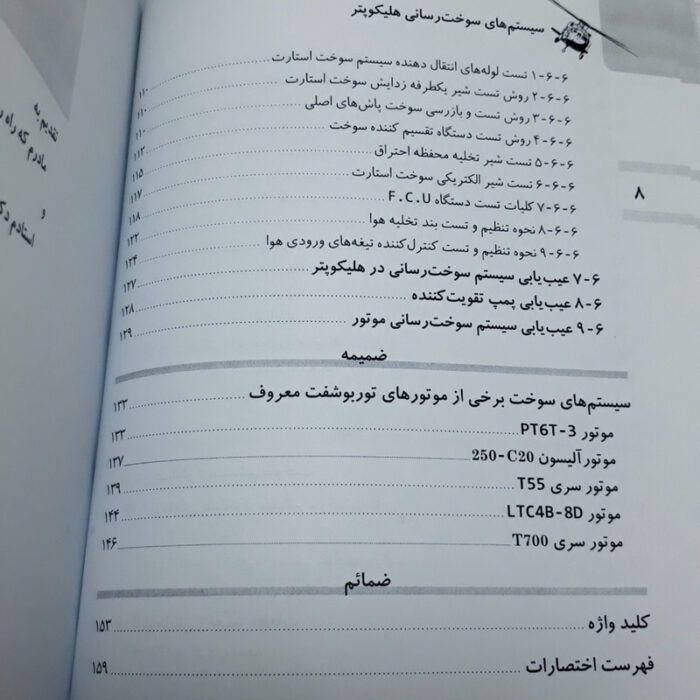 سیستم‌های سوخت‌رسانی هلیکوپتر
۸
۶-۶-۱ تست لوله‌های انتقال دهنده سیستم سوخت استارت ۱۱۰
۶-۶-۲ روش تست شیر یکطرفه زدایش سوخت استارت ۱۱۰
۶-۶-۳ روش تست و بازرسی سوخت پاش‌های اصلی ۱۱۰
۶-۶-۴ روش تست دستگاه تقسیم کننده سوخت ۱۱۳
۶-۶-۵ تست شیر تخلیه محفظه احتراق ۱۱۵
۶-۶-۶ تست شیر الکتریکی سوخت استارت ۱۱۷
۶-۶-۷ کلیات تست دستگاه F.C.U ۱۱۸
۶-۶-۸ نحوه تنظیم و تست بند تخلیه هوا ۱۲۲
۶-۶-۹ نحوه تنظیم و تست کنترل‌کننده تیغه‌های ورودی هوا ۱۲۴
۶-۷ عیب‌یابی سیستم سوخت‌رسانی در هلیکوپتر ۱۲۷
۶-۸ عیب‌یابی پمپ تقویت‌کننده ۱۲۸
۶-۹ عیب‌یابی سیستم سوخت‌رسانی موتور ۱۲۹
ضمیمه
سیستم‌های سوخت برخی از موتورهای توربوشفت معروف ۱۳۳
موتور PT6T-3 ۱۳۳
موتور آلیسون 250-C20 ۱۳۷
موتور سری T55 ۱۳۹
موتور LTC4B-8D ۱۴۴
موتور سری T700 ۱۴۶
ضمائم
کلید واژه ۱۵۳
فهرست اختصارات ۱۵۹
تقدیم به
مادرم که راه
و
استادم